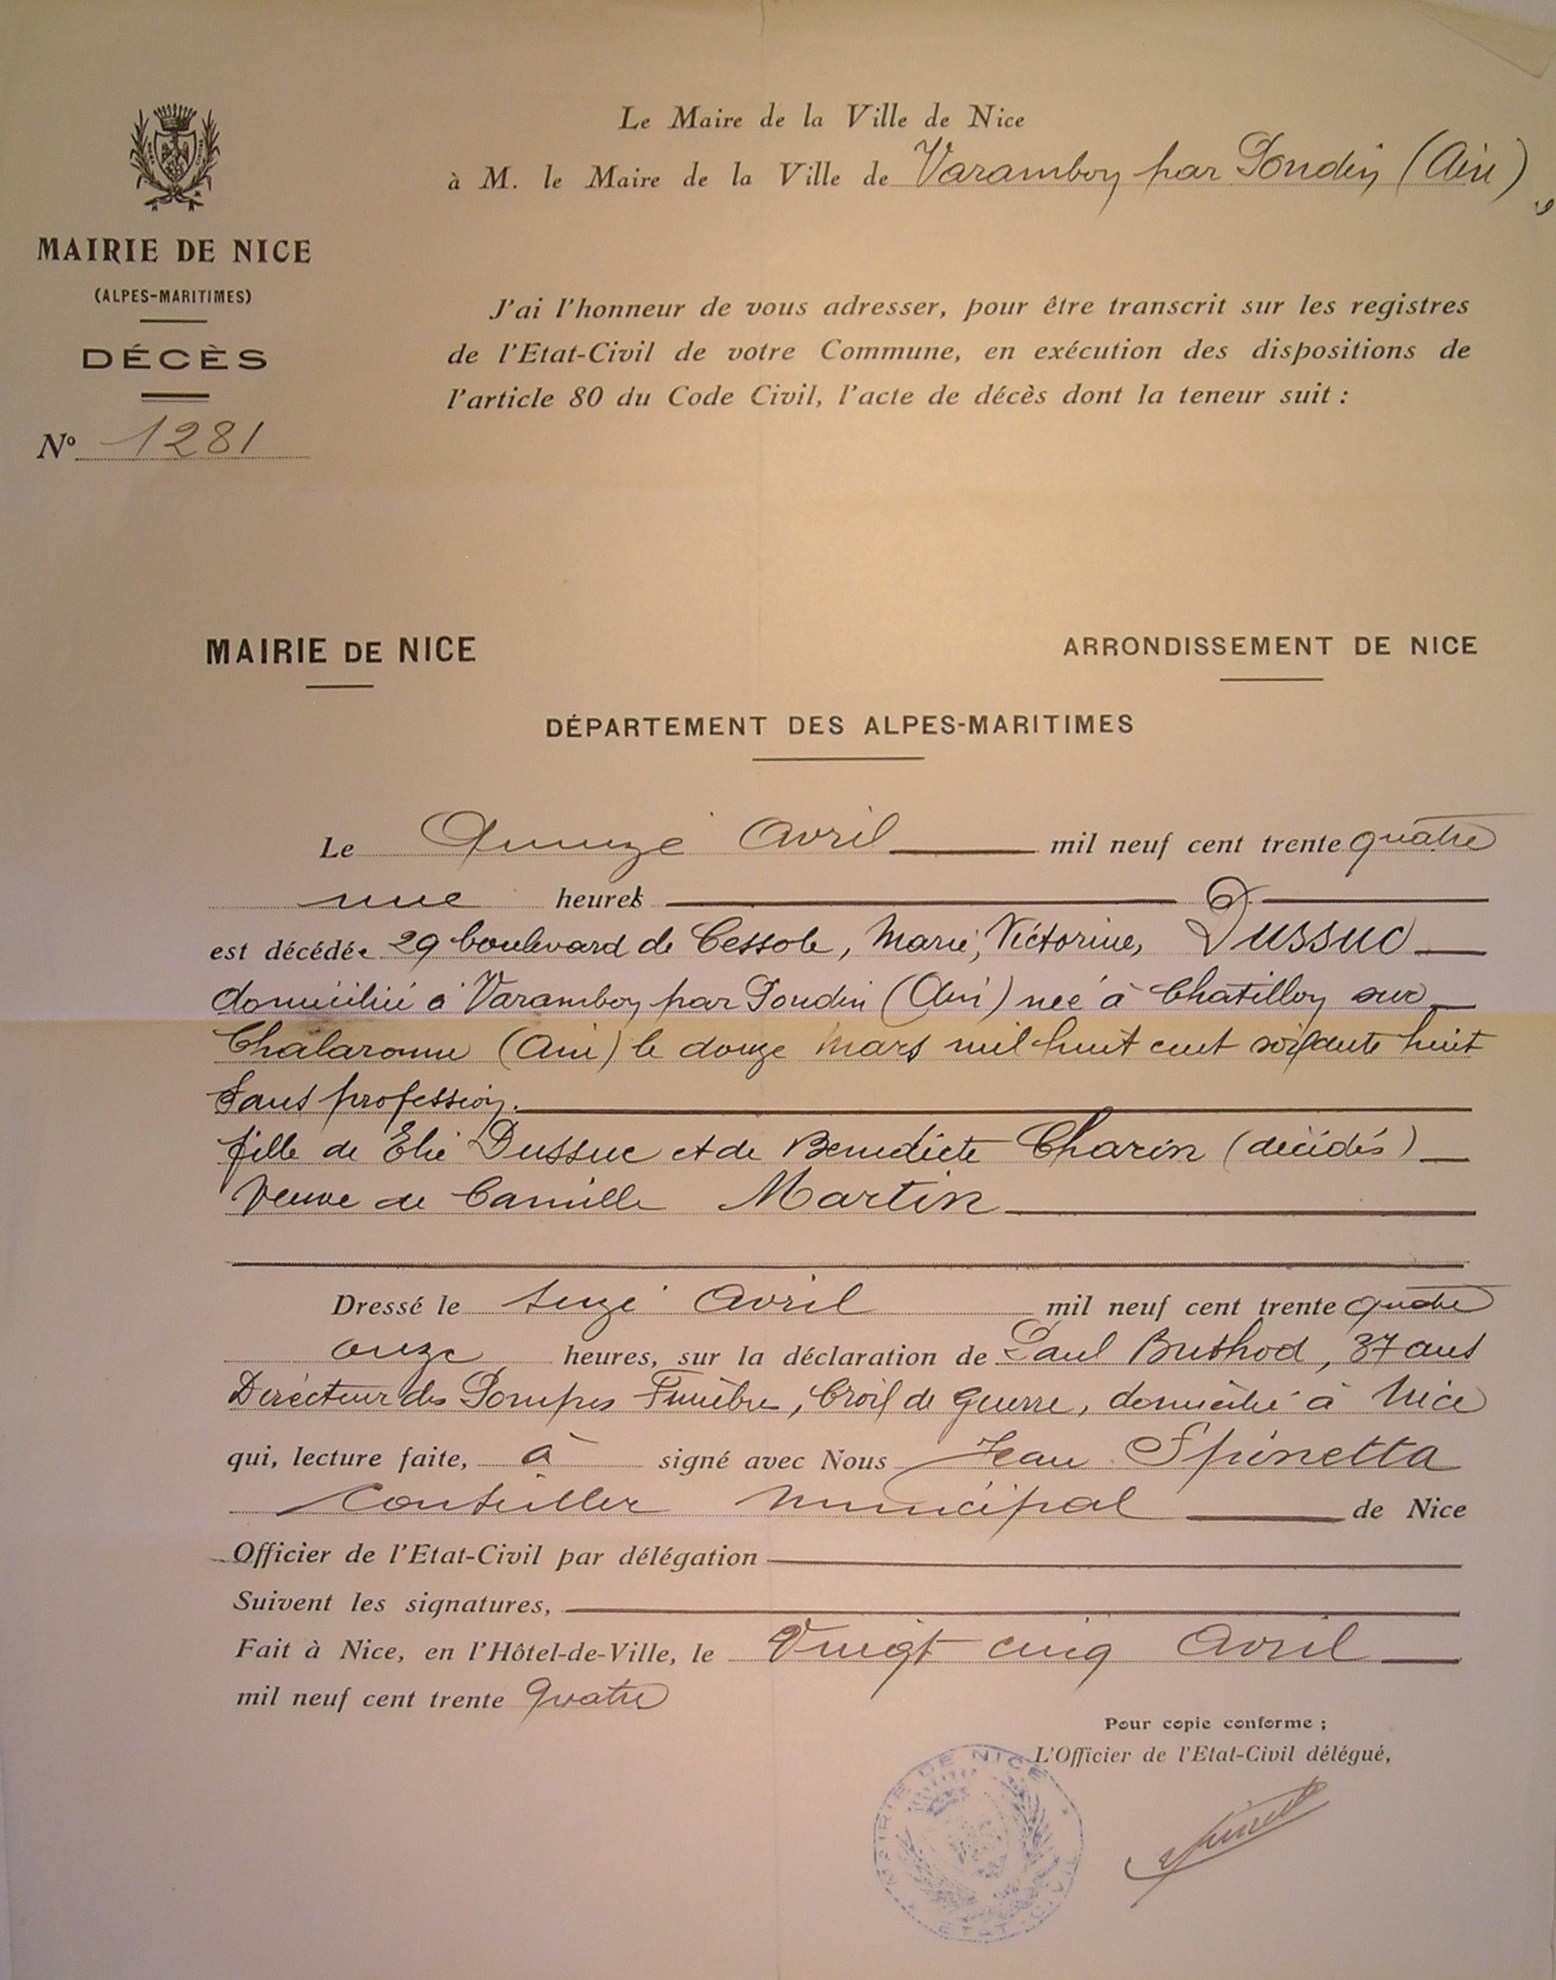 Le Maire de la Ville de Nice
à M. le Maire de la Ville de Varamboy par Pondin (Ain)
MAIRIE DE NICE
(ALPES-MARITIMES)
DÉCÈS
Nº 1281
J'ai l'honneur de vous adresser, pour être transcrit sur les registres
de l'Etat-Civil de votre Commune, en exécution des dispositions de
l'article 80 du Code Civil, l'acte de décès dont la teneur suit :
MAIRIE DE NICE
ARRONDISSEMENT DE NICE
DÉPARTEMENT DES ALPES-MARITIMES
Le Quinze Avril mil neuf cent trente quatre
une heure
est décédée 29 boulevard de Cessole, Marie, Victorine, Dussuc
domiciliée à Varamboy par Pondin (Ain) née à Chatillon sur
Chalaronne (Ain) le douze Mars mil huit cent soixante huit
Sans profession.
fille de Elie Dussuc et de Benedicte Charin (décédés)
Veuve de Camille Martin
Dressé le seize Avril mil neuf cent trente quatre
onze heures, sur la déclaration de Paul 37 ans
Directeur des Pompes Funèbres, Croix de Guerre, domicilié à Nice
qui, lecture faite, à signé avec Nous Jean Spinetta
Conseiller Municipal de Nice
Officier de l'Etat-Civil par délégation
Suivent les signatures,
Fait à Nice, en l'Hôtel-de-Ville, le Vingt cinq Avril
mil neuf cent trente quatre
Pour copie conforme ;
L'Officier de l'Etat-Civil délégué,
MAIRIE DE NICE
ETAT-CIVIL